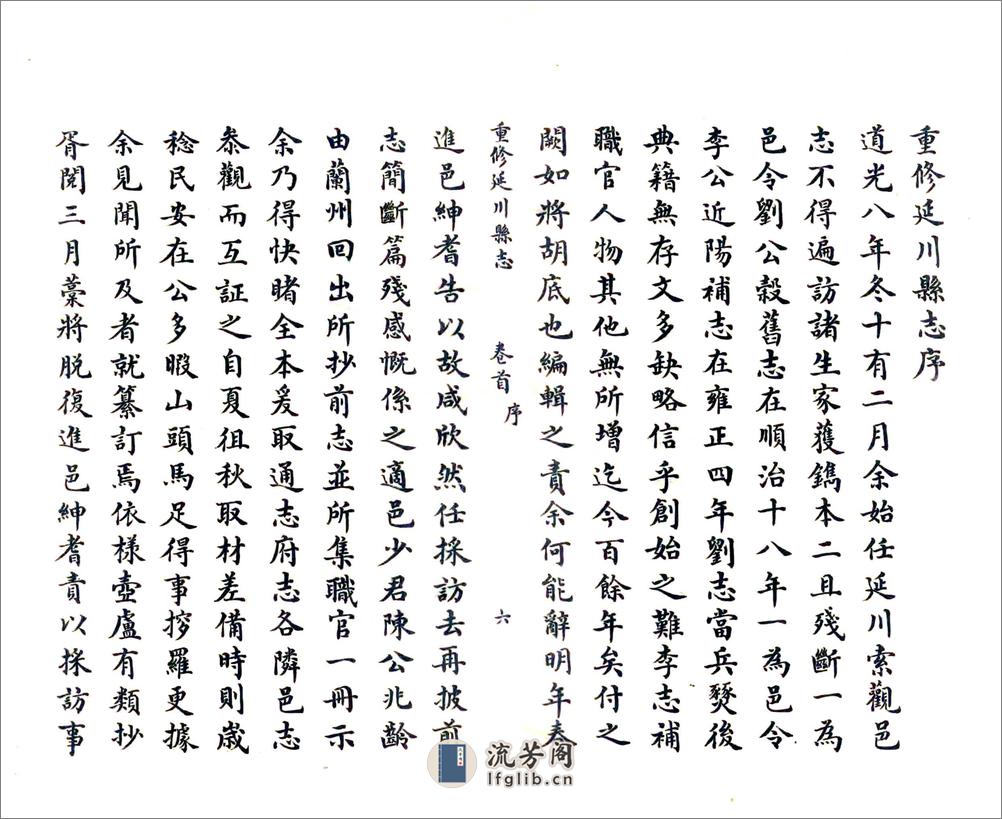 重修延川縣志序
道光八年冬十有二月余始任延川索觀邑
志不得遍訪諸生家獲鐫本二且殘斷一為
邑令劉公榖舊志在順治十八年一為邑令
李公近陽補志在雍正四年劉志當兵燹後
典籍無存文多缺略信乎創始之難李志補
職官人物其他無所增迄今百餘年矣付之
闕如將胡底也編輯之責余何能辭明年春
重修延川縣志 卷首 序 六
進邑紳耆告以故咸欣然任採訪去再披前
志簡斷篇殘感慨係之適邑少君陳公兆齡
由蘭州回出所抄前志並所集職官一冊示
余乃得快睹全本爰取通志府志各隣邑志
叅觀而互証之自夏徂秋取材差備時則歲
稔民安在公多暇山頭馬足得事搜羅更據
余見聞所及者就纂訂焉依樣壺盧有類抄
胥閱三月藁將脱復進邑紳耆責以採訪事
流芳阁
lfglib.cn